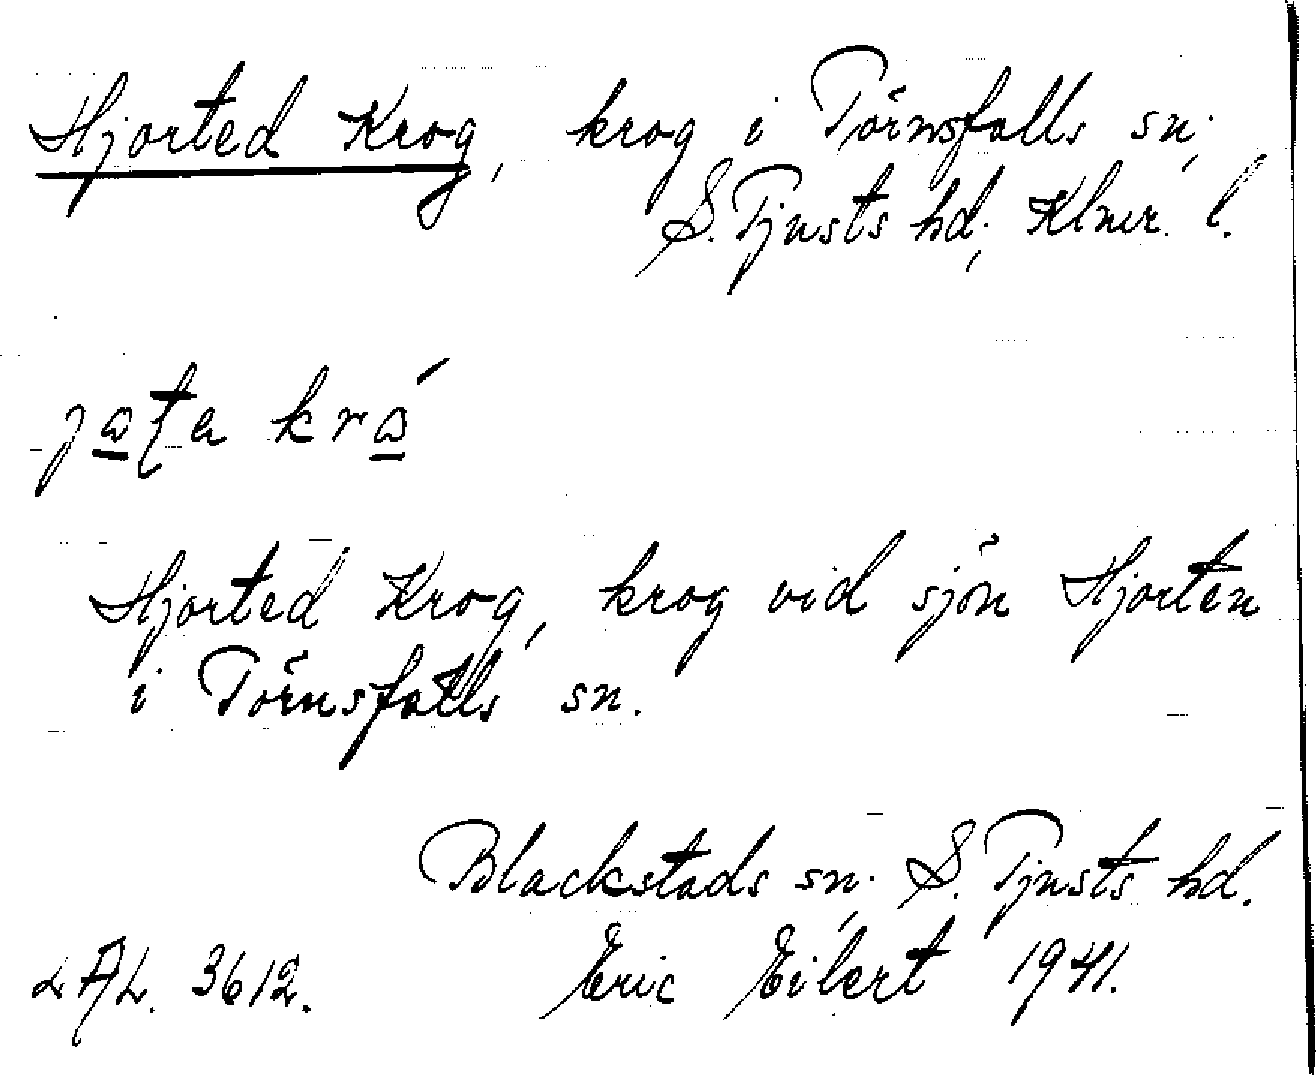 Hjorted Krog, krog i Törnsfalls sn.,
S. Tjusts hd., Klmr. l.
Hjorted Krog, krog vid sjön Hjorten
i Törnsfalls sn.
Blackstads sn., S. Tjusts hd.
LAL. 3612. Eric Eilert 1941.